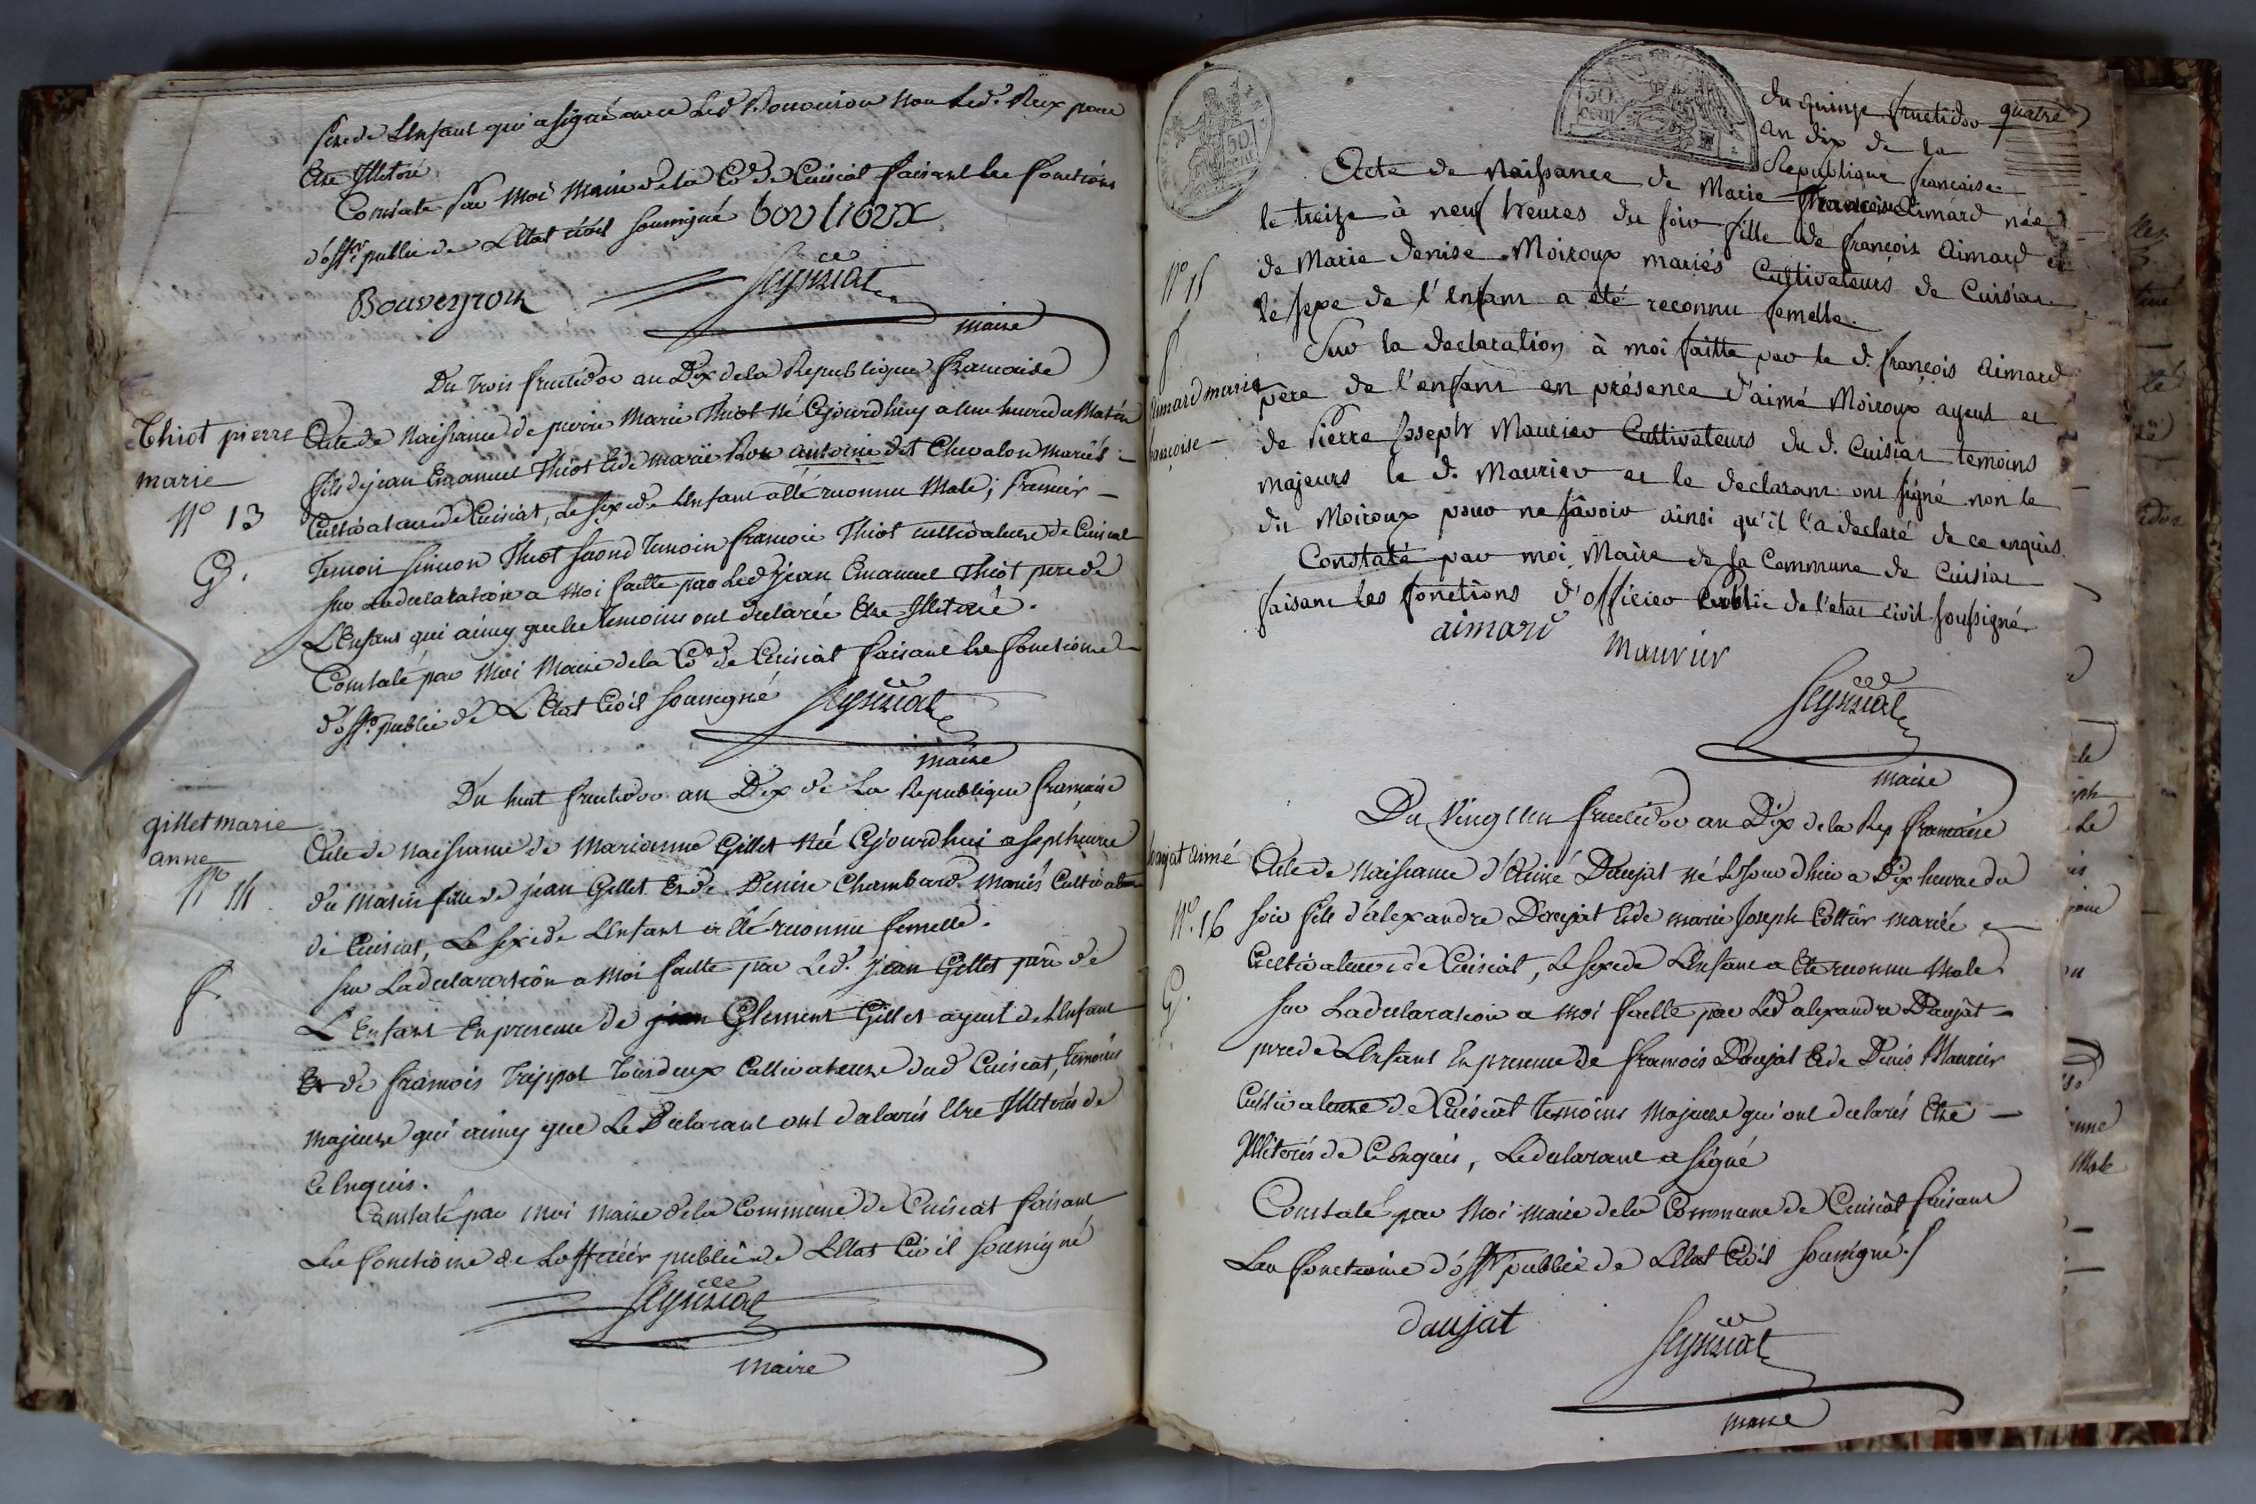 père de L'enfant qui a signé avec Led. Non Led. Reux pour
Etre Illitéré
Constaté par Moi Maire de la Cne de Cuisiat faisant les fonctions
d'offer public de L'Etat civil soussigné boulioux
Bouveyron
maire
Du trois fructidor an Dix de la Republique francaise
Thiot pierre
marie
N° 13
G.
Acte de Naissance de pierre Marie Thiot Né Cejourdhuy a une heure du Matin
fils de jean Emanuel Thiot Et de marie Rose antoine dit Chevalon Mariés
Cultivateurs de Cuisiat, Le sexe de L'enfant a été reconnu Male; premier
Temoin simeon Thiot second Temoin francois Thiot cultivateurs de Cuisiat
sur La declaration a Moi faitte par Led jean Emanuel Thiot pere de
L'Enfant qui ainsy que les Temoins ont declarée Etre Illiterée.
Constaté par Moi Maire de la Cne de Cuisiat faisant les fonctions
d'offer public de L'Etat Civil soussigné
maire
Du huit fructidor an Dix de La Republique francaise
gillet marie
anne
N° 14
f.
Acte de Naissance de Marianne Gillet Née Cejourdhui a sept heures
du Matin fille de jean Gillet Et de Denise Chambard Mariés Cultivateurs
de Cuisiat, Le sexe de L'enfant a été reconnu femelle.
sur La declaration a Moi faitte par Led. jean Gillet père de
L'Enfant En presence de jean Clement Gillet ayeul de L'enfant
Et de francois Trippot Tous deux Cultivateurs dud Cuisiat, Temoins
Majeurs qui ainsy que Le Declarant ont declarés Etre Illiterés de
Ce Enquis.
Constaté par Moi Maire de la Commune de Cuisiat faisant
Les fonctions de L'officier public de L'Etat Civil soussigné
Maire
50 cent
50 cent
du quinze fructidor quatre
an dix de la
Republique francaise
Acte de Naissance de Marie francoise Aimard née
le treize à neuf heures du soir fille de françois Aimard et
de Marie Denise Moiroux mariés Cultivateurs de Cuisiat
le sexe de l'enfant a été reconnu femelle.
N° 15
f
aimard marie
françoise
Sur la declaration à moi faitte par le d. françois Aimard
père de l'enfant en présence d'aimé Moiroux ayeul et
de Pierre Joseph Maurier Cultivateurs du d. Cuisiat temoins
majeurs le d. Maurier et le declarant ont signé non le
dit Moiroux pour ne sâvoir ainsi qu'il l'a declaré de ce enquis.
Constaté par moi Maire de la Commune de Cuisiat
faisant les fonctions d'officier Public de l'etat civil soussigné
aimard maurier
maire
Du Vingt un fructidor an Dix de la Rep francaise
daujat aimé
N°. 16
G.
Acte de Naissance d'Aimé Daujat né Cejourdhui a Dix heures du
soir fils d'alexandre Daujat Et de marie Joseph Mariés et
Cultivateurs de Cuisiat, Le sexe de L'Enfant a Eté reconnu Male
sur La declaration a Moi faitte par Led alexandre Daujat
pere de L'Enfant En presence de francois Daujat Et de Denis Maurier
Cultivateurs de Cuisiat temoins Majeurs qui ont declarés Etre
Illiterés de Ce Enquis, Le declarant a signé
Constaté par Moi Maire de la Commune de Cuisiat faisant
Les fonctions d'offer public de L'Etat Civil soussigné./
daujat
maire